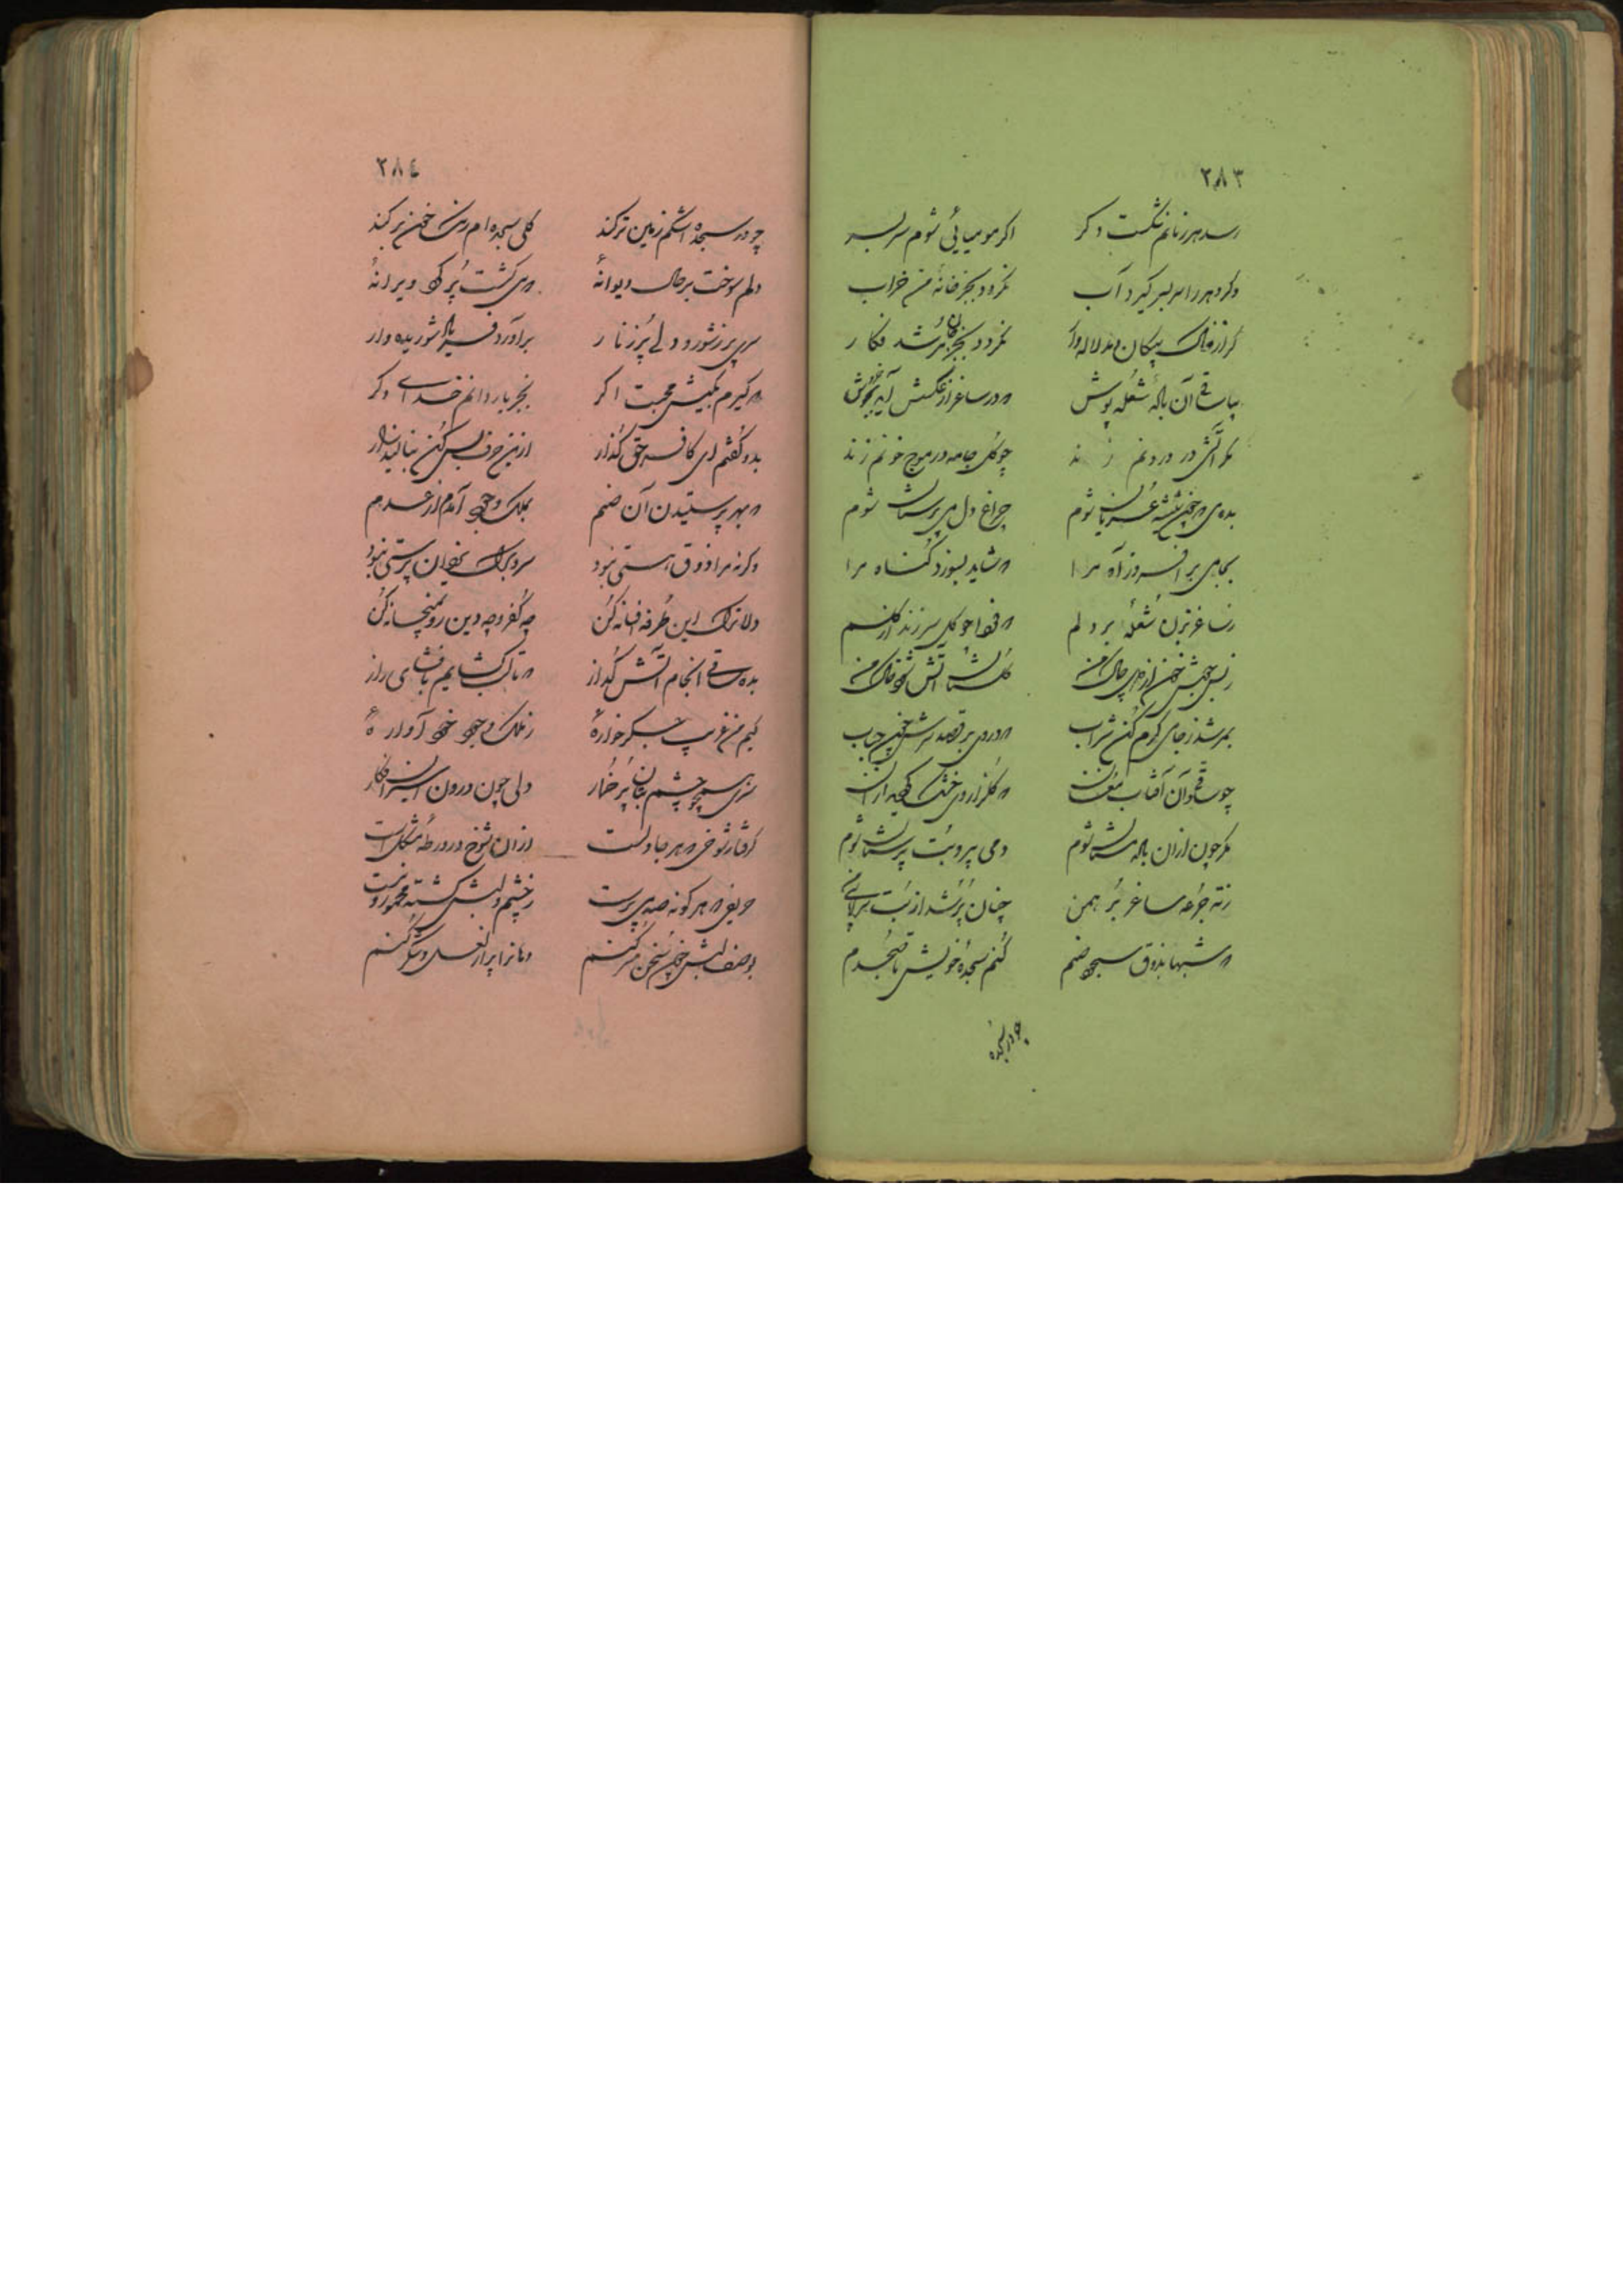 ٢٨٣
رسد هر زمانم شکست دکر اکر مومیایی شوم سربسر
وکر دهر را سربسر کیرد آب نکردد بجز خانهٔ من خراب
کر از خاک پیکان دمد لاله وار نکردد بجز جان من شد فکار
بیا ساقی آن نالهٔ شعله پوش که در ساغر از عکسش آید بجوش
مکر آتشی در درونم زند چو کل جامه در موج خونم زند
بده می که چون شیشه عریان شوم چراغ دل می پرستان شوم
بجامی بر افروز آه مرا که شاید بسوزد کناه مرا
ز ساغر بزن شعلهٔ بر دلم که فواره کل سر زند از کلم
ز بس جوشش خون از دل چاک من کلستان آتش شود خاک من
چو ساقی آن آفتاب مغان
مکر چون ازان ناله مستان شوم دمی پیرو بت پرستان شوم
ز ته جرعه ساغر برهمن چنان پر شد از بت
که شبها بذوق سجود صنم کنم سجدهٔ خویش تا صبحدم
چو در سجده
٢٨٤
چو در سجده اشکم زمین تر کند کلی سجده ام رنک خون بر کند
دلم سوخت بر حال دیوانهٔ که می کشت بر کرد ویرانهٔ
سری پر ز شور و دلی پر ز نار برآورد فریاد شوریده وار
که کیرم بکیش محبت اکر بجز یار دانم خدای دکر
بدو کفتم ای کافر حق کذار ازین حرف بس کن بنالید زار
که بهر پرستیدن آن صنم بملک وجود آمدم از عدم
وکرنه مرا ذوق هستی نبود سر و برک
دلا ترک این طرفه افسانه کن چه کفر و چه دین رو بمیخانه کن
بده ساقی آن جام آتش کداز که تا لب کشایم بافشای راز
کیم من غریب جکر خوارهٔ ز ملک وجود خود آوارهٔ
سری همچو چشم بتان پر خمار دلی چون درون اسیران فکار
کرفتار شوخی که هر جا دلست ازان شوخ در ورطه مشکلست
حریفی که هر کونه صهبا پرست ز چشم و لبش کشته مخمور و مست
بوصف لبش چون سخن سر کنم دهان را پر از لعل و شکر کنم